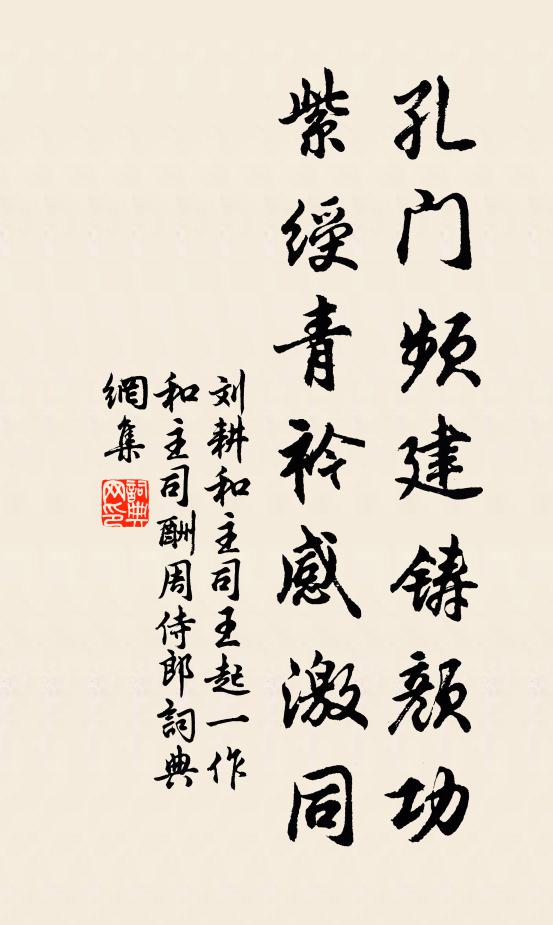 孔门频建铸颜功
紫绶青衿感激同
刘耕和主司王起一作
和主司酬周侍郎詞典
網集
詞典
网印